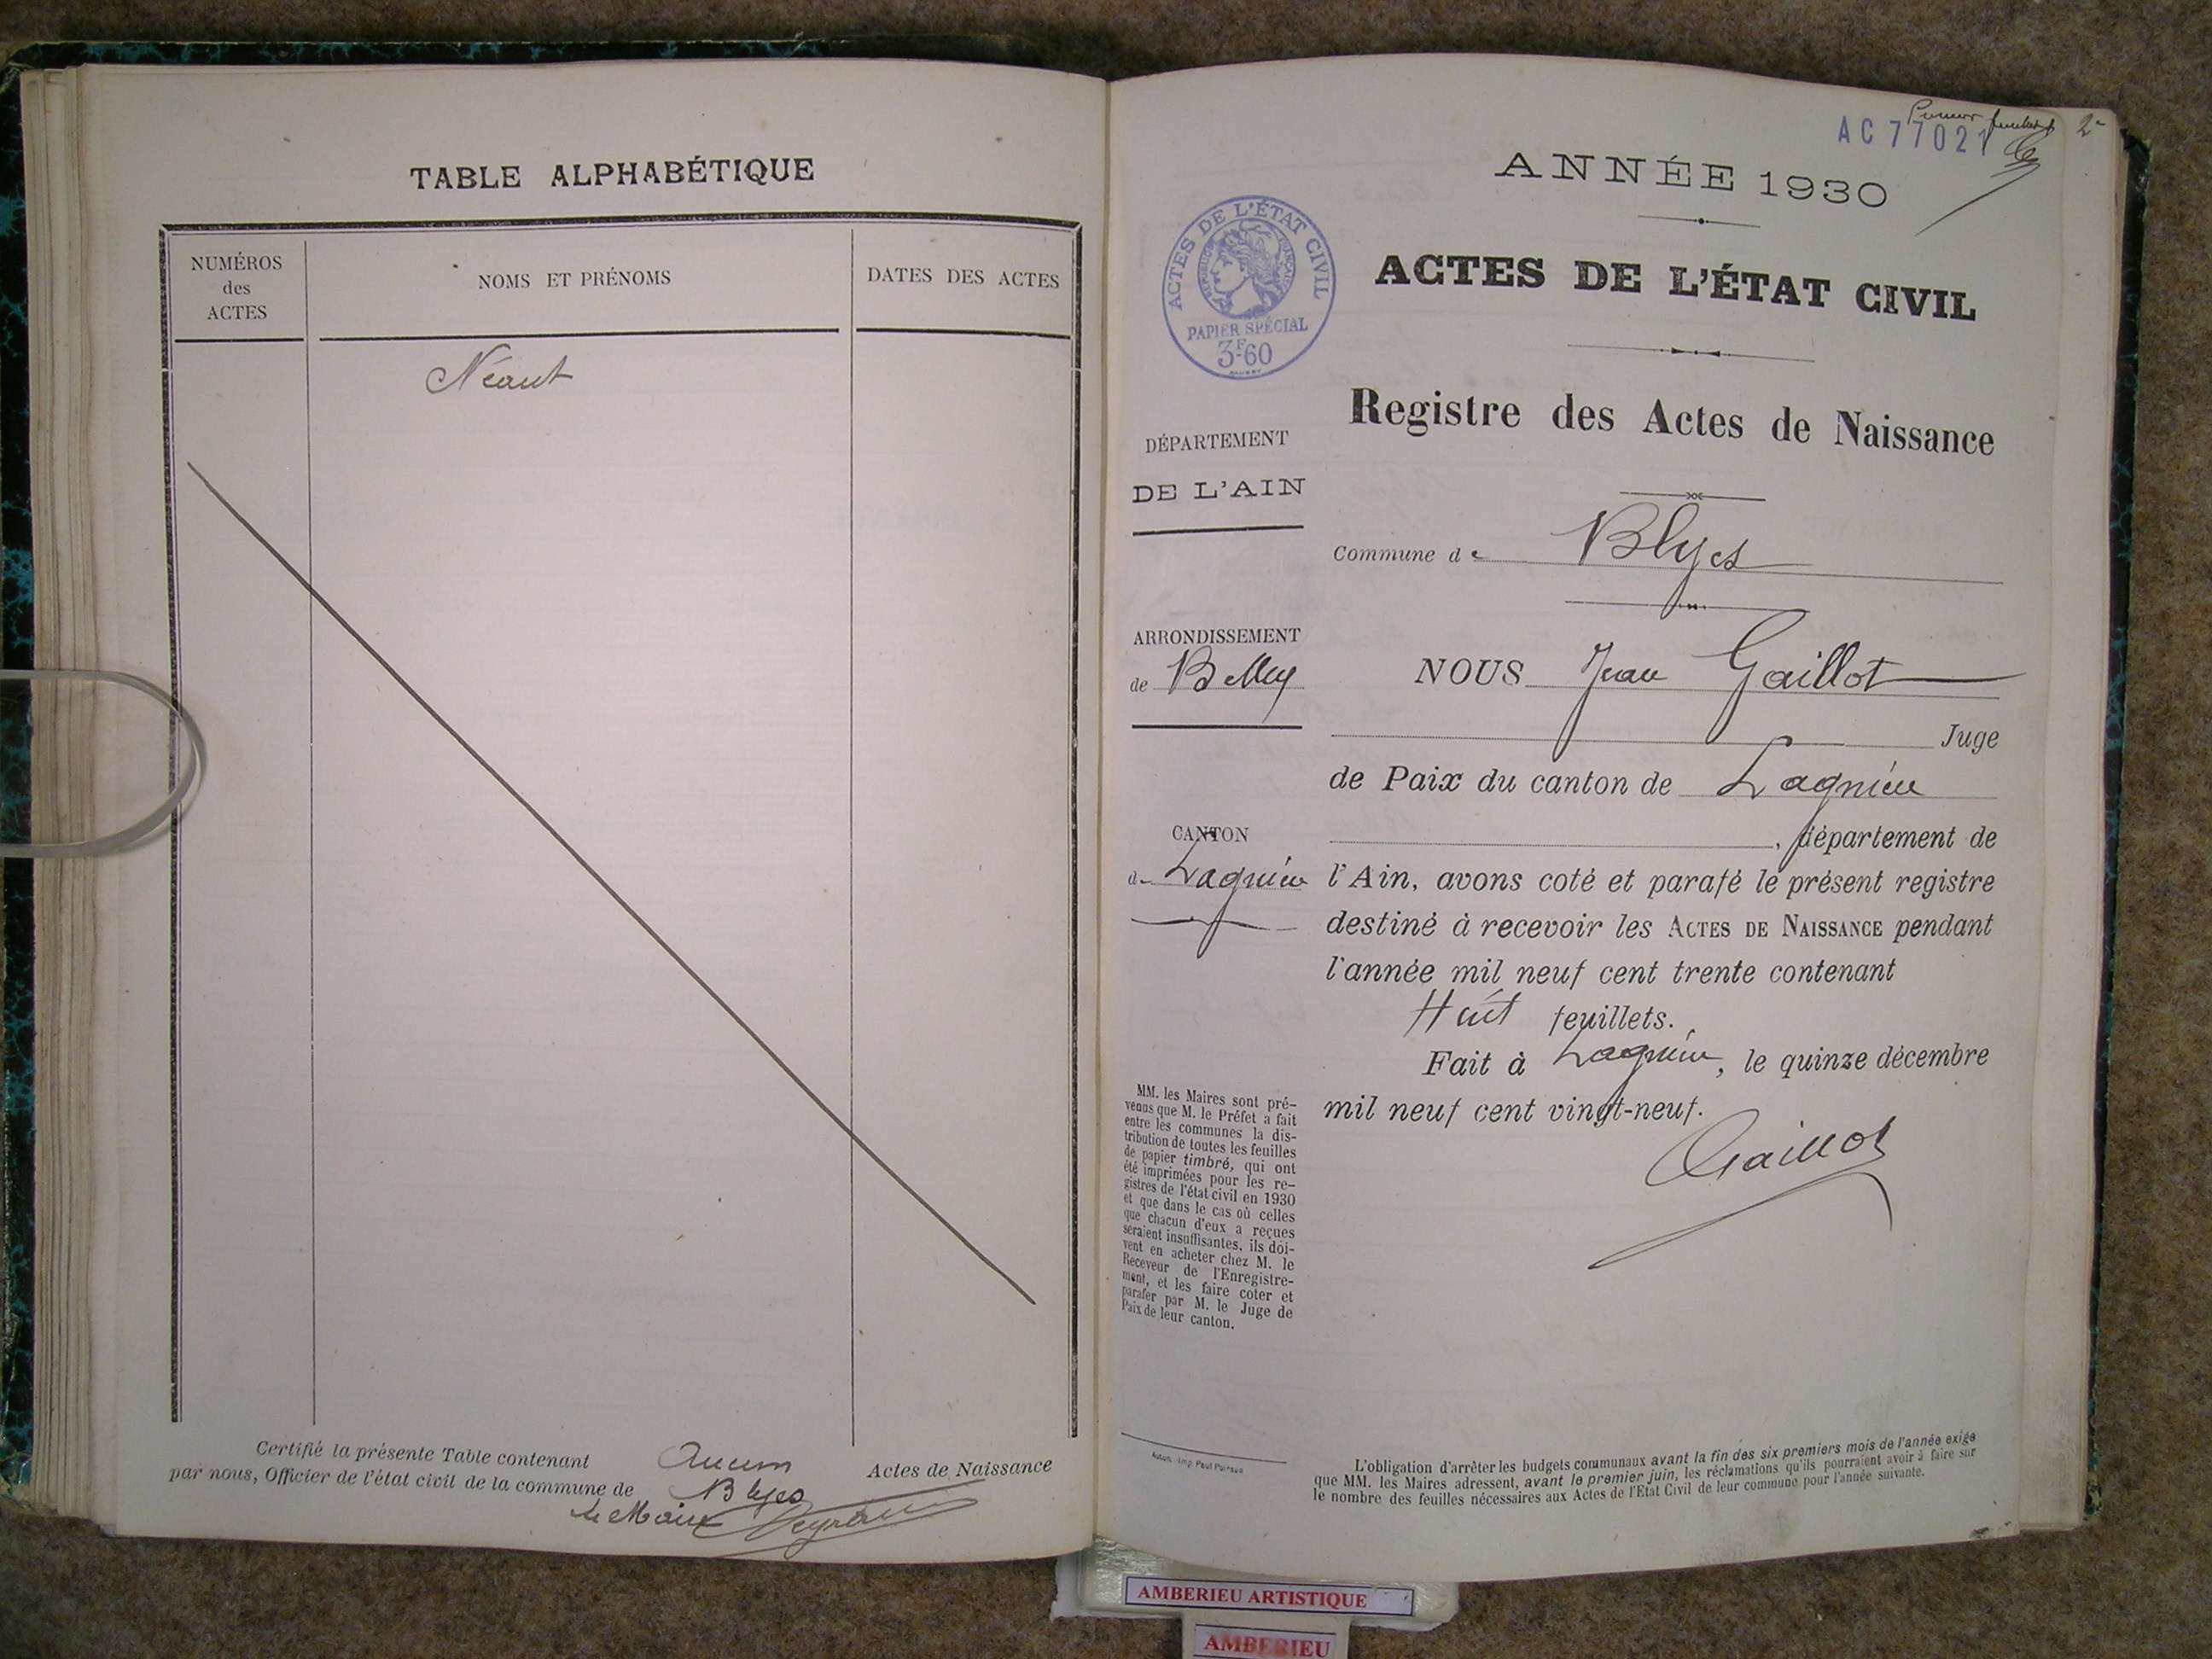 TABLE ALPHABÉTIQUE
NUMÉROS
des
ACTES
NOMS ET PRÉNOMS
DATES DES ACTES
Néant
Certifié la présente Table contenant Aucun Actes de Naissance
par nous, Officier de l'état civil de la commune de Blyes
Le Maire
AC 77021
2
ANNÉE 1930
ACTES DE L'ÉTAT CIVIL
PAPIER SPÉCIAL
3F60
ACTES DE L'ÉTAT CIVIL
Registre des Actes de Naissance
DÉPARTEMENT
DE L'AIN
Commune de Blyes
ARRONDISSEMENT
de Belley
CANTON
de Lagnieu
NOUS Jean Gaillot
Juge
de Paix du canton de Lagnieu
, département de
l'Ain, avons coté et parafé le présent registre
destiné à recevoir les ACTES DE NAISSANCE pendant
l'année mil neuf cent trente contenant
Huit feuillets.
Fait à Lagnieu, le quinze décembre
mil neuf cent vingt-neuf.
Gaillot
MM. les Maires sont pré-
venus que M. le Préfet a fait
entre les communes la dis-
tribution de toutes les feuilles
de papier timbré, qui ont
été imprimées pour les re-
gistres de l'état civil en 1930
et que dans le cas où celles
que chacun d'eux a reçues
seraient insuffisantes, ils doi-
vent en acheter chez M. le
Receveur de l'Enregistre-
ment, et les faire coter et
parafer par M. le Juge de
Paix de leur canton.
L'obligation d'arrêter les budgets communaux avant la fin des six premiers mois de l'année exige
que MM. les Maires adressent, avant le premier juin, les réclamations qu'ils pourraient avoir à faire sur
le nombre des feuilles nécessaires aux Actes de l'Etat Civil de leur commune pour l'année suivante.
AMBERIEU ARTISTIQUE
AMBERIEU